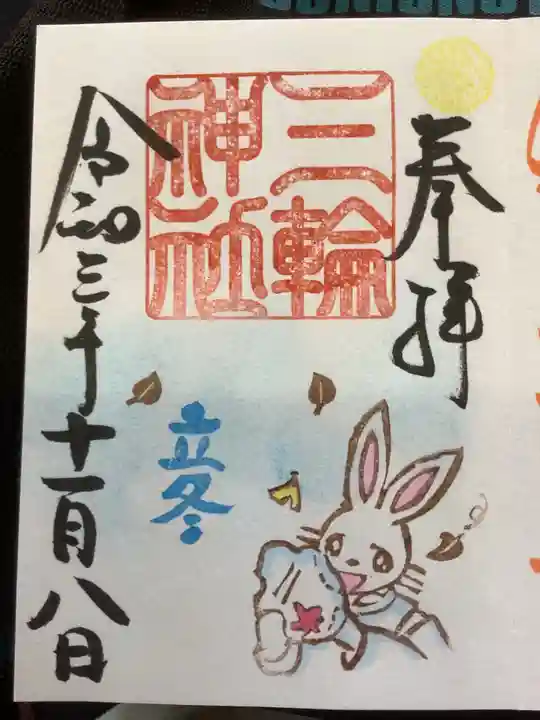 奉拝
三輪
神社
立冬
令和三年十一月八日